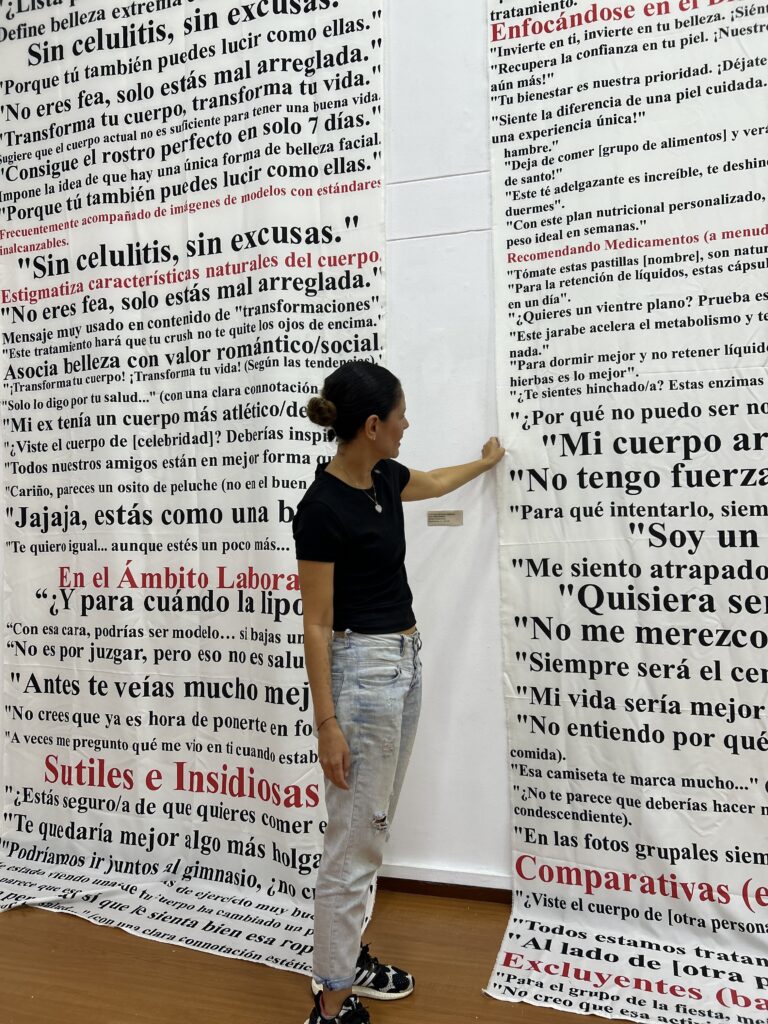 "¿Lista p
Define belleza extrema
Sin celulitis, sin excusas."
"Porque tú también puedes lucir como ellas."
"No eres fea, solo estás mal arreglada."
"Transforma tu cuerpo, transforma tu vida."
Sugiere que el cuerpo actual no es suficiente para tener una buena vida.
"Consigue el rostro perfecto en solo 7 días."
Impone la idea de que hay una única forma de belleza facial.
"Porque tú también puedes lucir como ellas."
Frecuentemente acompañado de imágenes de modelos con estándares
inalcanzables.
"Sin celulitis, sin excusas."
Estigmatiza características naturales del cuerpo.
"No eres fea, solo estás mal arreglada."
Mensaje muy usado en contenido de "transformaciones"
"Este tratamiento hará que tu crush no te quite los ojos de encima."
Asocia belleza con valor romántico/social.
"¡Transforma tu cuerpo! ¡Transforma tu vida! (Según las tendencias).
"Solo lo digo por tu salud..." (con una clara connotación
"Mi ex tenía un cuerpo más atlético/de
"¿Viste el cuerpo de [celebridad]? Deberías inspi
"Todos nuestros amigos están en mejor forma q
"Cariño, pareces un osito de peluche (no en el buen
"Jajaja, estás como una b
"Te quiero igual... aunque estés un poco más...
En el Ámbito Labora
“¿Y para cuándo la lipo
“Con esa cara, podrías ser modelo… si bajas un
“No es por juzgar, pero eso no es salu
"Antes te veías mucho mej
"No crees que ya es hora de ponerte en fo
"A veces me pregunto qué me vio en ti cuando estab
Sutiles e Insidiosas
"¿Estás seguro/a de que quieres comer e
"Te quedaría mejor algo más holga
"Podríamos ir juntos al gimnasio, ¿no cr
de ejercicio muy bue
tu cuerpo ha cambiado un p
que le sienta bien esa rop
con una clara connotación estétic
tratamiento.
Enfocándose en el Bi
"Invierte en ti, invierte en tu belleza. ¡Sién
"Recupera la confianza en tu piel. ¡Nuestro
aún más!"
"Tu bienestar es nuestra prioridad. ¡Déjate
"Siente la diferencia de una piel cuidada.
una experiencia única!"
hambre."
"Deja de comer [grupo de alimentos] y verá
de santo!"
"Este té adelgazante es increíble, te deshin
duermes".
"Con este plan nutricional personalizado,
peso ideal en semanas."
Recomendando Medicamentos (a menud
"Tómate estas pastillas [nombre], son natur
"Para la retención de líquidos, estas cápsul
en un día".
"¿Quieres un vientre plano? Prueba es
"Este jarabe acelera el metabolismo y te
nada."
"Para dormir mejor y no retener líquido
hierbas es lo mejor".
"¿Te sientes hinchado/a? Estas enzimas
"¿Por qué no puedo ser no
"Mi cuerpo ar
"No tengo fuerza
"Para qué intentarlo, siem
"Soy un
"Me siento atrapado
"Quisiera se
"No me merezco
"Siempre será el cen
"Mi vida sería mejor
"No entiendo por qué
comida).
"Esa camiseta te marca mucho..." (
"¿No te parece que deberías hacer m
condescendiente).
"En las fotos grupales siem
Comparativas (e
"¿Viste el cuerpo de [otra persona
"Todos estamos tratan
"Al lado de [otra p
Excluyentes (ba
"Para el grupo de la fiesta, me
"No creo que esa acti